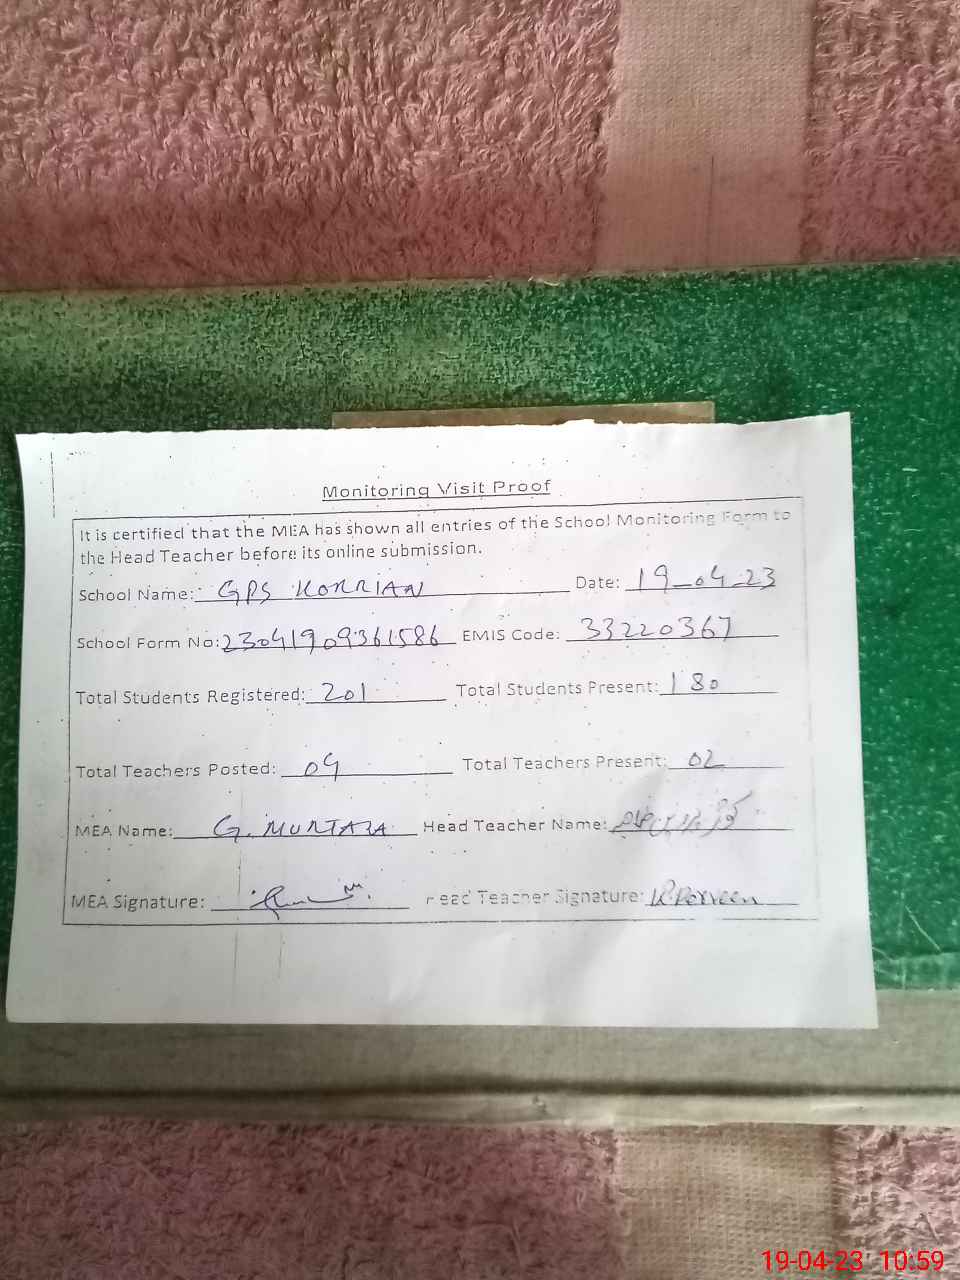 Monitoring Visit Proof
It is certified that the MEA has shown all entries of the School Monitoring Form to
the Head Teacher before its online submission.
School Name: GPS KORRIAN Date: 19-04-23
School Form No: 23041909361586 EMIS Code: 33220367
Total Students Registered: 201 Total Students Present: 180
Total Teachers Posted: 04 Total Teachers Present: 02
MEA Name: G. MURTAZA Head Teacher Name:
MEA Signature: Head Teacher Signature: R. Perveen
19-04-23 10:59